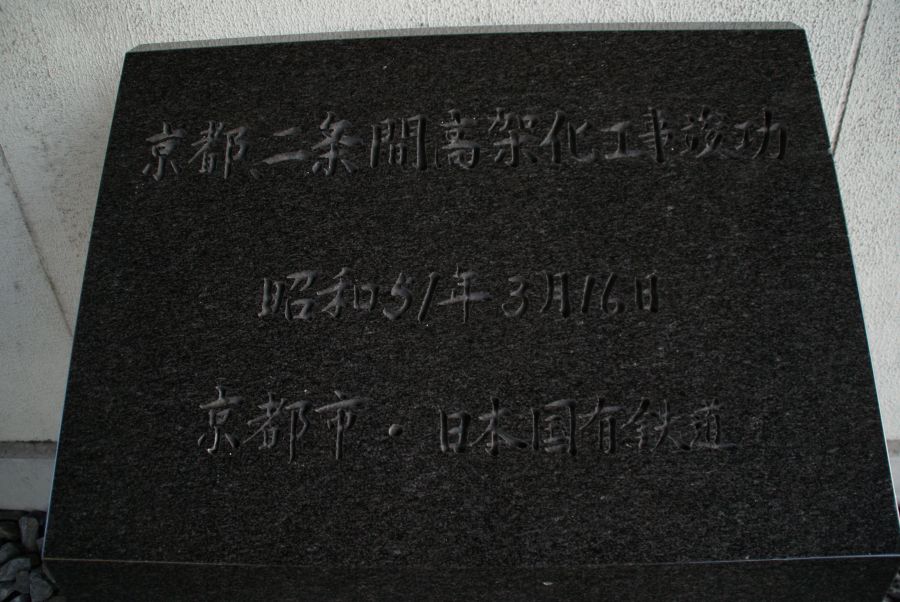 京都、二条間高架化工事竣功
昭和51年3月16日
京都市・日本国有鉄道